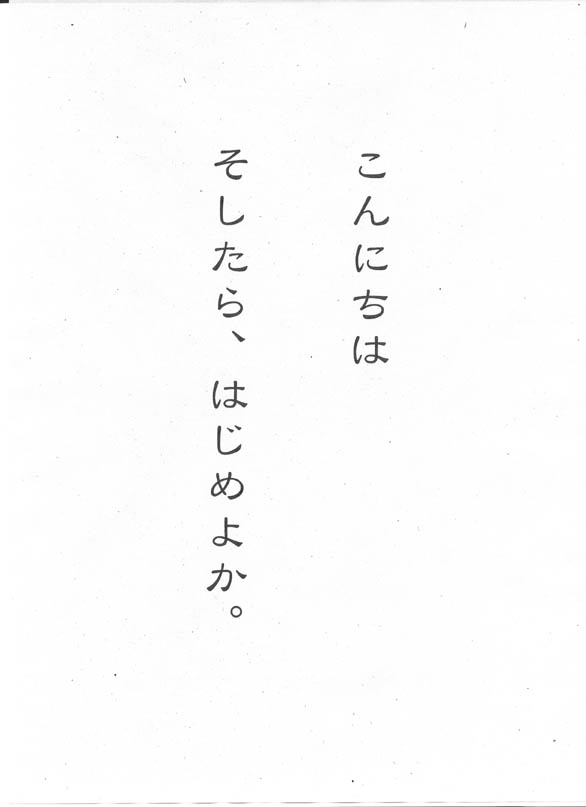 こんにちは
そしたら、はじめよか。